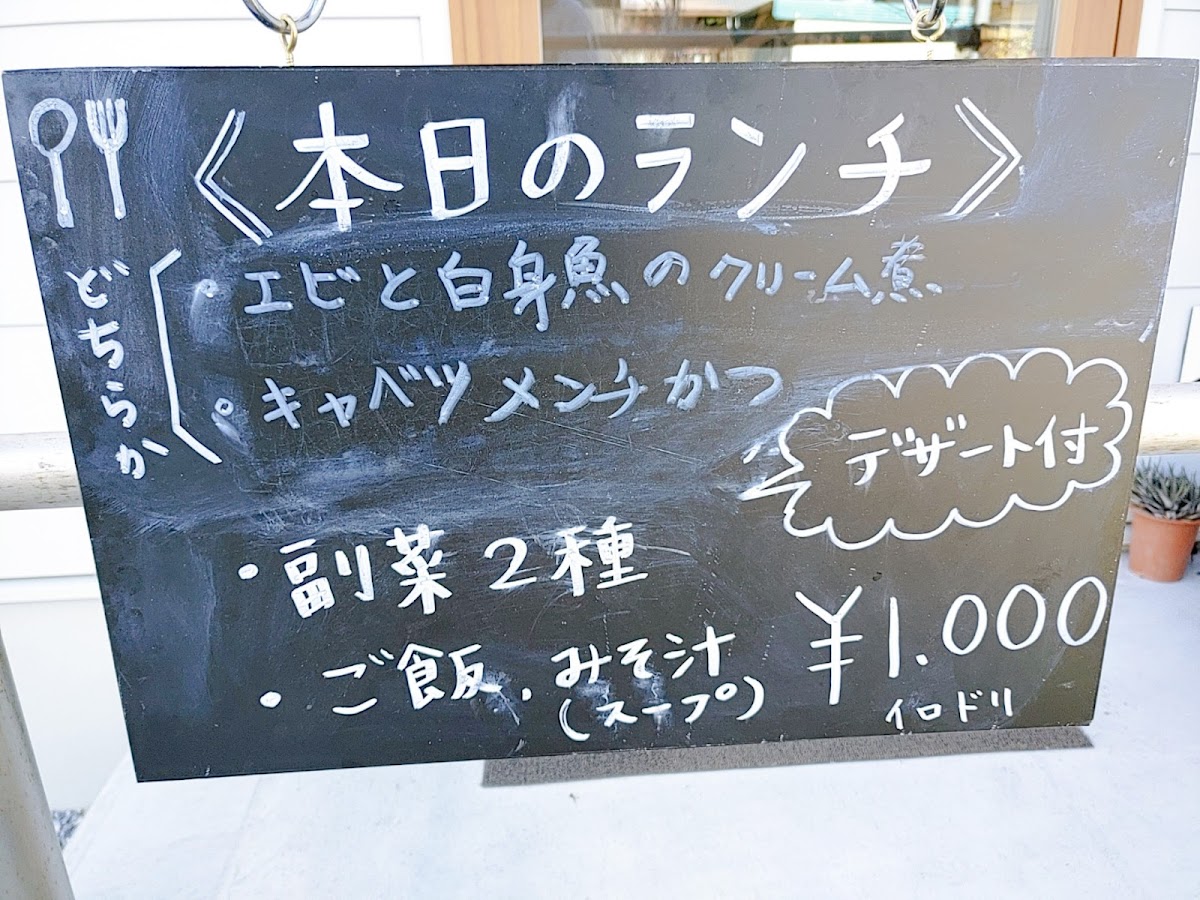 《本日のランチ》
どちらか
。エビと白身魚のクリーム煮
。キャベツメンチかつ
デザート付
・副菜2種
・ご飯、みそ汁
(スープ)
¥1.000
イロドリ